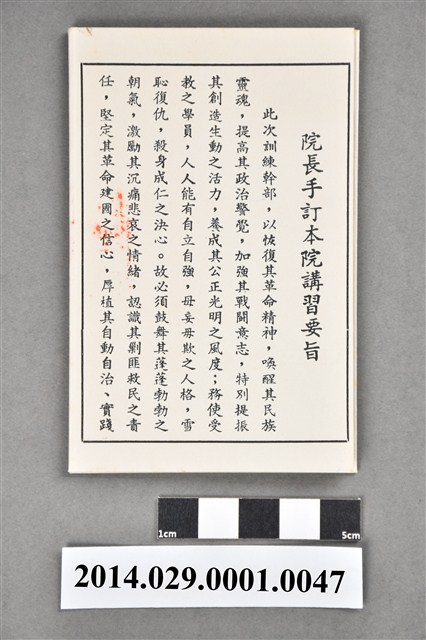 院長手訂本院講習要旨
此次訓練幹部，以恢復其革命精神，喚醒其民族
靈魂，提高其政治警覺，加強其戰鬪意志，特別提振
其創造生動之活力，養成其公正光明之風度；務使受
教之學員，人人能有自立自強，毋妄毋欺之人格，雪
恥復仇，殺身成仁之決心。故必須鼓舞其蓬蓬勃勃之
朝氣，激勵其沉痛悲哀之情緒，認識其剿匪救民之責
任，堅定其革命建國之信心，厚植其自動自治、實踐
1cm 5cm
2014.029.0001.0047